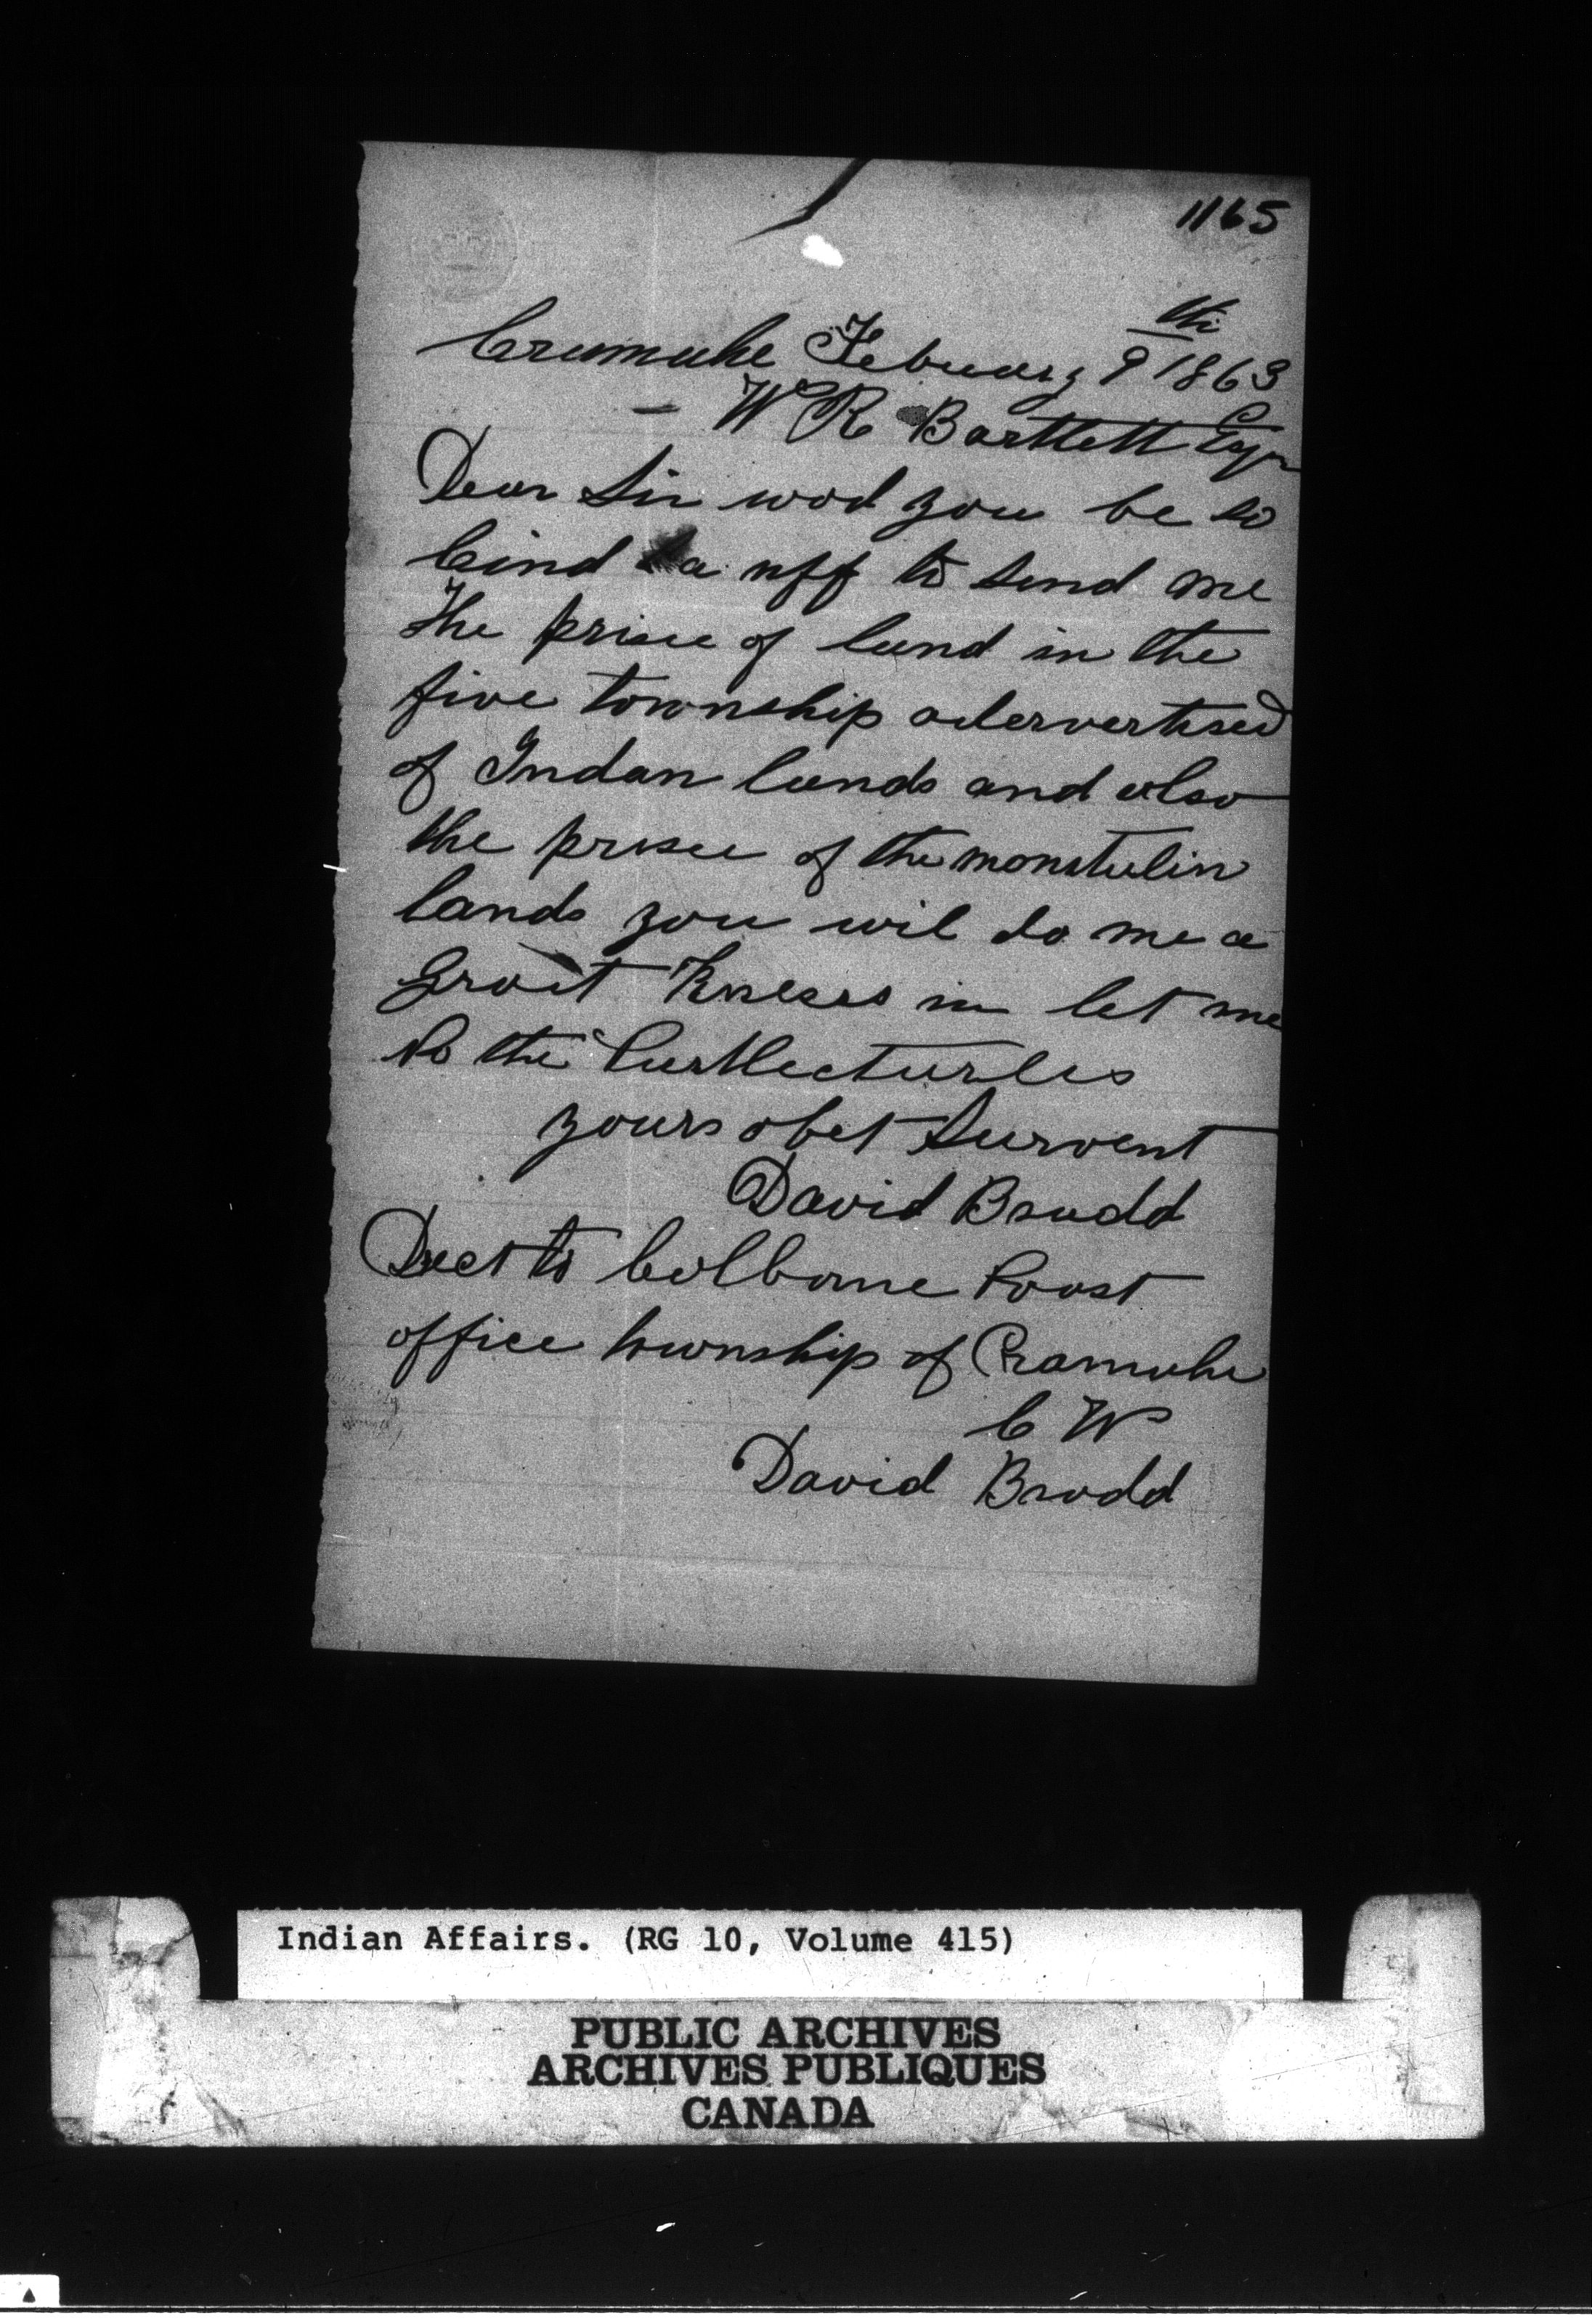 1165
Crumuhe Febuary 9th 1863
W R Bartlett Esqr
Dear Sir wod you be so
Cind a nff to Send me
the prise of lund in the
five township adervertised
of Indan lunds and also
the prisee of the monetulin
lands you wil do me a
Graet Kneess in let me
No the Purtlecturles
yours obet Survent
David Brudd
Drect to Colborne Poost
office township of Cramuhe
C W
David Brodd
Indian Affairs. (RG 10, Volume 415)
PUBLIC ARCHIVES
ARCHIVES PUBLIQUES
CANADA